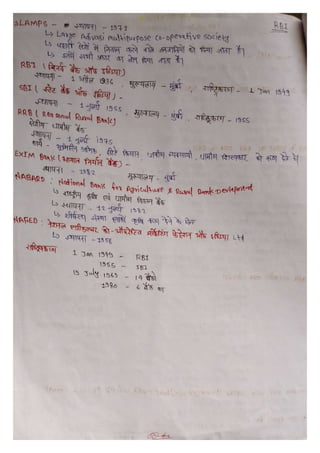 RBI
LAMPS - स्थापना - 1971
↳ Large Advasi multipurpose co-operative society
↳ पहाड़ी क्षेत्रों में निवास करने वाले जनजातियों को दिया जाता है।
↳ इसमें सभी प्रकार का लोन दिया जाता है।
RBI (रिजर्व बैंक ऑफ इंडिया)
स्थापना - 1 अप्रैल 1935, मुख्यालय - मुंबई, राष्ट्रीयकरण - 1 Jan 1949
SBI (स्टेट बैंक ऑफ इंडिया) -
स्थापना - 1 जुलाई 1955, मुख्यालय - मुंबई, राष्ट्रीयकरण - 1955
RRB (Regional Rural Bank)
क्षेत्रीय ग्रामीण बैंक
स्थापना - 1975
कार्य - छोटे किसान, ग्रामीण को ऋण देने में
EXIM Bank (आयात निर्यात बैंक) -
स्थापना - 1982
मुख्यालय - मुंबई
NABARD : National Bank for Agriculture & Rural Development
↳ राष्ट्रीय कृषि एवं ग्रामीण विकास बैंक
↳ स्थापना - 12 जुलाई 1982
↳ शीर्षस्थ संस्था कृषि ऋण देने के लिए
NAFED : नेशनल एग्रीकल्चर को-ऑपरेटिव मार्केटिंग फेडरेशन ऑफ इंडिया Ltd
↳ स्थापना - 1958
राष्ट्रीयकरण
1 Jan 1949 - RBI
1955 - SBI
19 July 1969 - 14 बैंको
1980 - 6 बैंक का